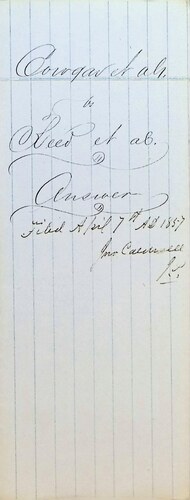 Cowgar et als.
vs
Reed et als.
Answer
Filed April 7th AD 1857
Jno Caldwell